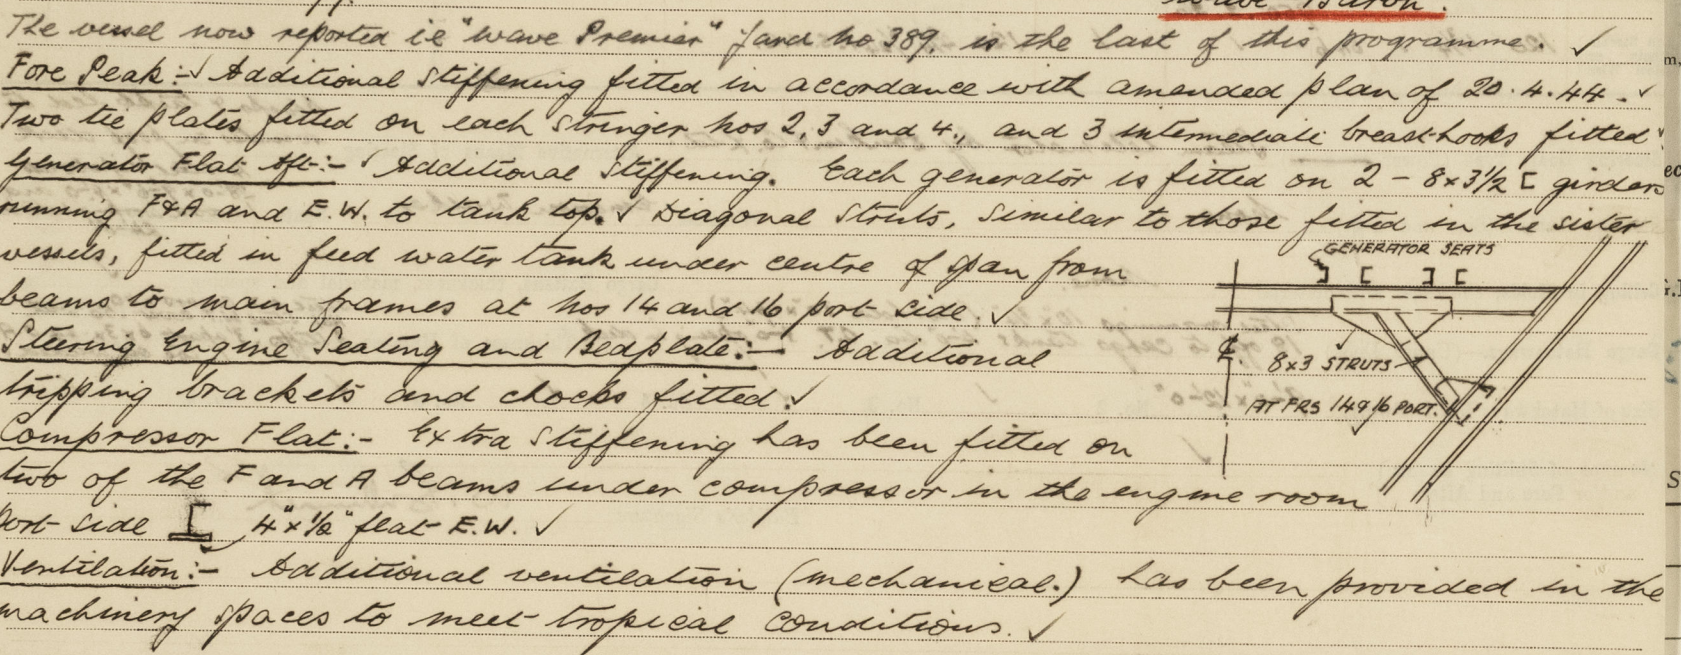 "Wave Baron".
The vessel now reported ie "Wave Premier" Yard No 389. is the last of this programme. ✓
Fore Peak:- ✓ Additional stiffening fitted in accordance with amended plan of 20.4.44. ✓
Two tie plates fitted on each stringer nos 2, 3 and 4., and 3 intermediate breasthooks fitted ✓
Generator Flat Aft:- ✓ Additional stiffening. Each generator is fitted on 2 - 8x3½ [ girders
running F&A and E.W. to tank top. ✓ Diagonal struts, similar to those fitted in the sister
vessels, fitted in feed water tank under centre of span from
beams to main frames at nos 14 and 16 port side. ✓
Steering Engine Seating and Bedplate:- Additional
tripping brackets and chocks fitted. ✓
Compressor Flat:- Extra stiffening has been fitted on
two of the F and A beams under compressor in the engine room
port side [ 4"x½" flat E.W. ✓
Ventilation:- Additional ventilation (mechanical.) has been provided in the
machinery spaces to meet tropical conditions. ✓
GENERATOR SEATS
℄
8x3 STRUTS
AT FRS 14 & 16 PORT.